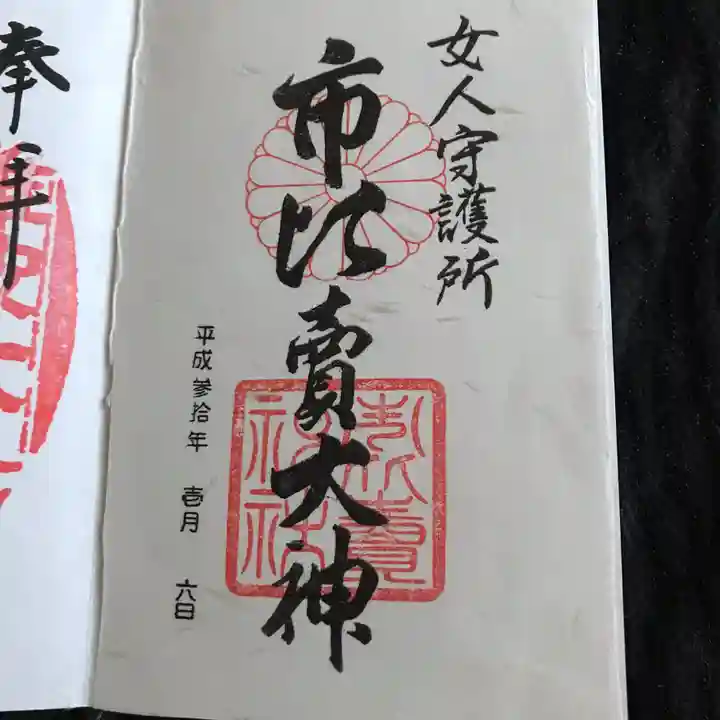 女人守護所
市比賣大神
平成参拾年 壱月 六日
市比賣神社
奉拝